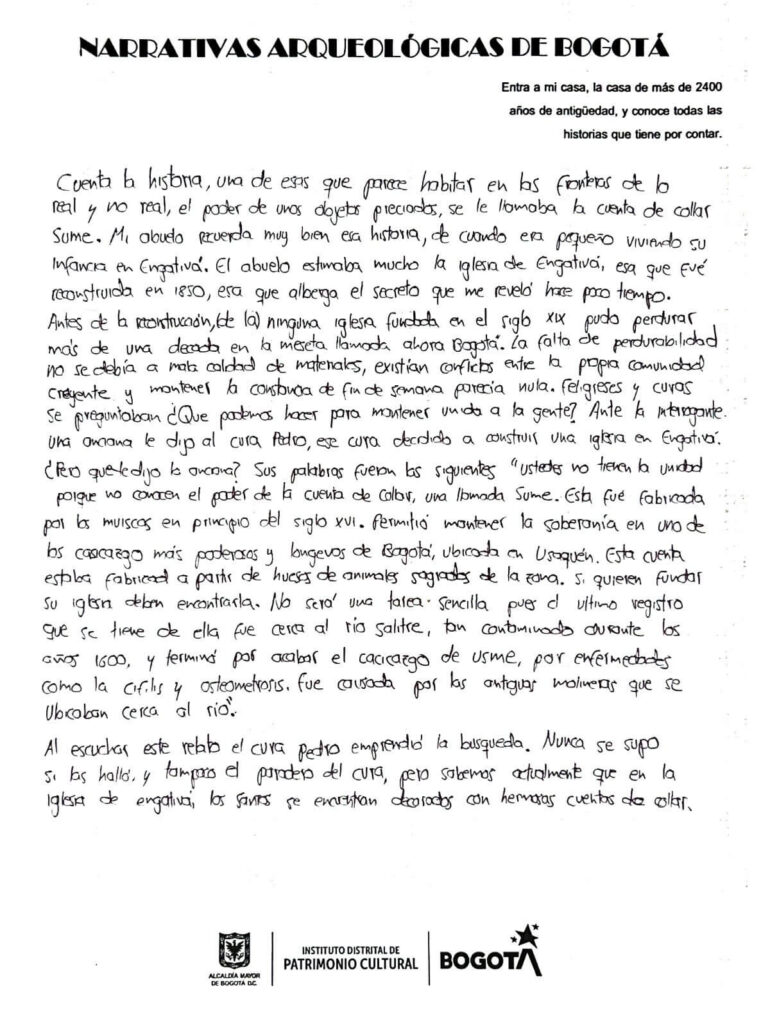 NARRATIVAS ARQUEOLÓGICAS DE BOGOTÁ
Entra a mi casa, la casa de más de 2400
años de antigüedad, y conoce todas las
historias que tiene por contar.
Cuenta la historia, una de esas que parece habitar en las fronteras de lo
real y no real, el poder de unos objetos preciados, se le llamaba la cuenta de collar
Sume. Mi abuelo recuerda muy bien esa historia, de cuando era pequeño viviendo su
infancia en Engativá. El abuelo estimaba mucho la iglesia de Engativá, esa que fué
reconstruida en 1850, esa que alberga el secreto que me reveló hace poco tiempo.
Antes de la reconstrucción, (de la) ninguna iglesia fundada en el siglo XIX pudo perdurar
más de una decada en la meseta llamada ahora Bogotá. La falta de perdurabilidad
no se debía a mala calidad de materiales, existían conflictos entre la propia comunidad
creyente y mantener la constancia de fin de semana parecía nula. Feligreses y curas
se preguntaban ¿Que podemos hacer para mantener unida a la gente? Ante la interrogante.
Una anciana le dijo al cura Pedro, ese cura decidido a construir una iglesia en Engativá.
¿Pero que le dijo la anciana? Sus palabras fueron las siguientes "ustedes no tienen la unidad
porque no conocen el poder de la cuenta de collar, una llamada Sume. Esta fué fabricada
por los muiscas en principio del siglo XVI. Permitió mantener la soberanía en uno de
los cacicazgo más poderosos y longevos de Bogotá, ubicada en Usaquén. Esta cuenta
estaba fabricad a partir de huesos de animales sagrados de la zona. Si quieren fundar
su iglesia deben encontrarla. No será una tarea sencilla pues el ultimo registro
que se tiene de ella fue cerca al río salitre, tan contaminado durante los
años 1600, y terminó por acabar el cacicazgo de usme, por enfermedades
como la cifilis y osteometrosis. Fue causada por las antiguas molineras que se
ubicaban cerca al río".
Al escuchar este relato el cura pedro emprendió la busqueda. Nunca se supo
si las halló, y tampoco el paradero del cura, pero sabemos actualmente que en la
iglesia de engativá, los santos se encuentran decorados con hermosas cuentas de collar.
ALCALDÍA MAYOR
DE BOGOTÁ D.C.
INSTITUTO DISTRITAL DE
PATRIMONIO CULTURAL
BOGOTÁ